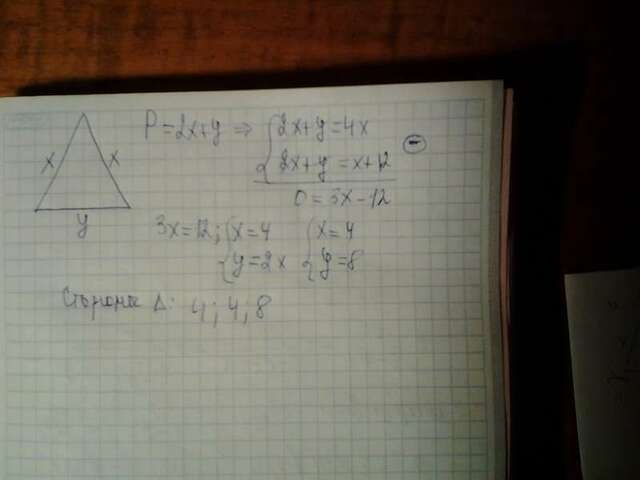 x x
y
P=2x+y ⇒ { 2x+y=4x
2x+y=x+12 ⊖
0=3x-12
3x=12; { x=4 { x=4
y=2x y=8
Стороны Δ: 4; 4; 8